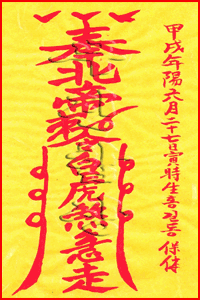 甲戌年陽六月二十七日寅時生홍길동 保
奉北帝敕白虎煞急走